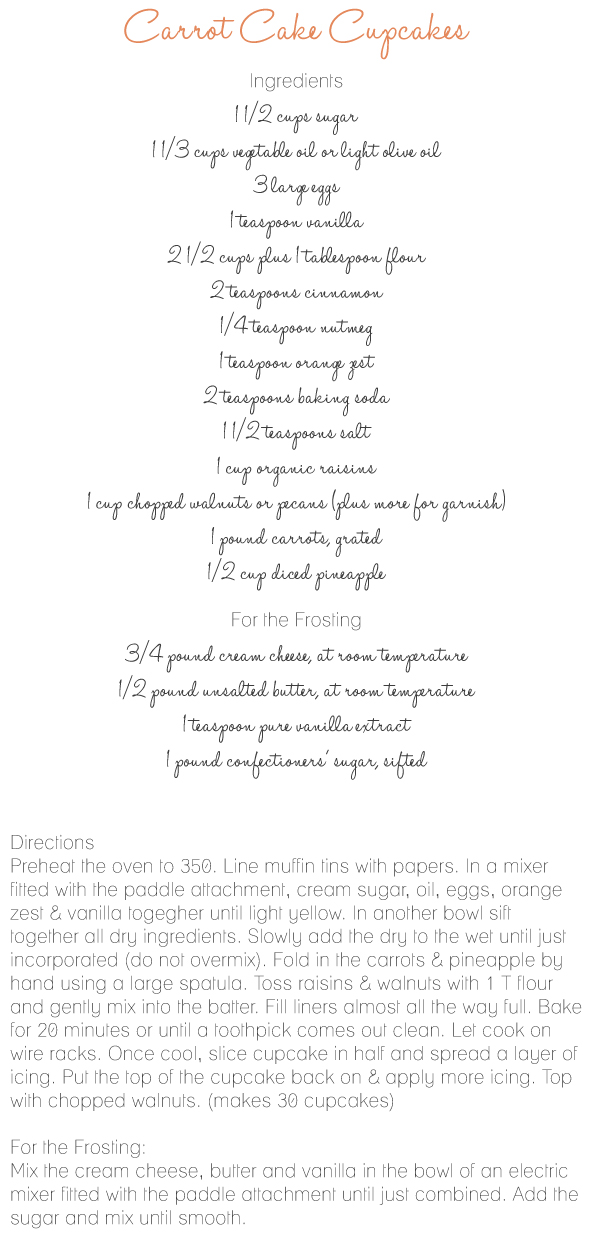 Carrot Cake Cupcakes
Ingredients
1 1/2 cups sugar
1 1/3 cups vegetable oil or light olive oil
3 large eggs
1 teaspoon vanilla
2 1/2 cups plus 1 tablespoon flour
2 teaspoons cinnamon
1/4 teaspoon nutmeg
1 teaspoon orange zest
2 teaspoons baking soda
1 1/2 teaspoons salt
1 cup organic raisins
1 cup chopped walnuts or pecans (plus more for garnish)
1 pound carrots, grated
1/2 cup diced pineapple
For the Frosting
3/4 pound cream cheese, at room temperature
1/2 pound unsalted butter, at room temperature
1 teaspoon pure vanilla extract
1 pound confectioners' sugar, sifted
Directions
Preheat the oven to 350. Line muffin tins with papers. In a mixer
fitted with the paddle attachment, cream sugar, oil, eggs, orange
zest & vanilla togegher until light yellow. In another bowl sift
together all dry ingredients. Slowly add the dry to the wet until just
incorporated (do not overmix). Fold in the carrots & pineapple by
hand using a large spatula. Toss raisins & walnuts with 1 T flour
and gently mix into the batter. Fill liners almost all the way full. Bake
for 20 minutes or until a toothpick comes out clean. Let cook on
wire racks. Once cool, slice cupcake in half and spread a layer of
icing. Put the top of the cupcake back on & apply more icing. Top
with chopped walnuts. (makes 30 cupcakes)
For the Frosting:
Mix the cream cheese, butter and vanilla in the bowl of an electric
mixer fitted with the paddle attachment until just combined. Add the
sugar and mix until smooth.